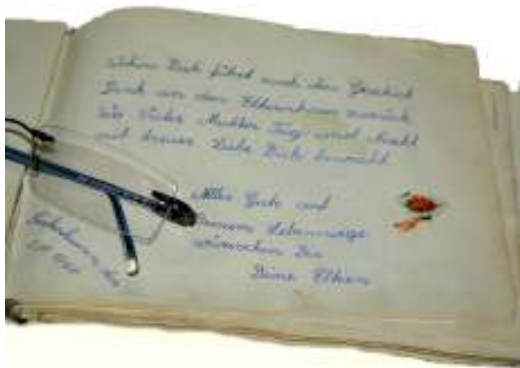 Wohin Dich führt auch das Geschick
Denk an das Elternhaus zurück
Wo Mutter Tag und Nacht
mit treuer Liebe Dich bewacht.
Alles Gute auf
Deinem Lebenswege
wünschen Dir
Deine Eltern